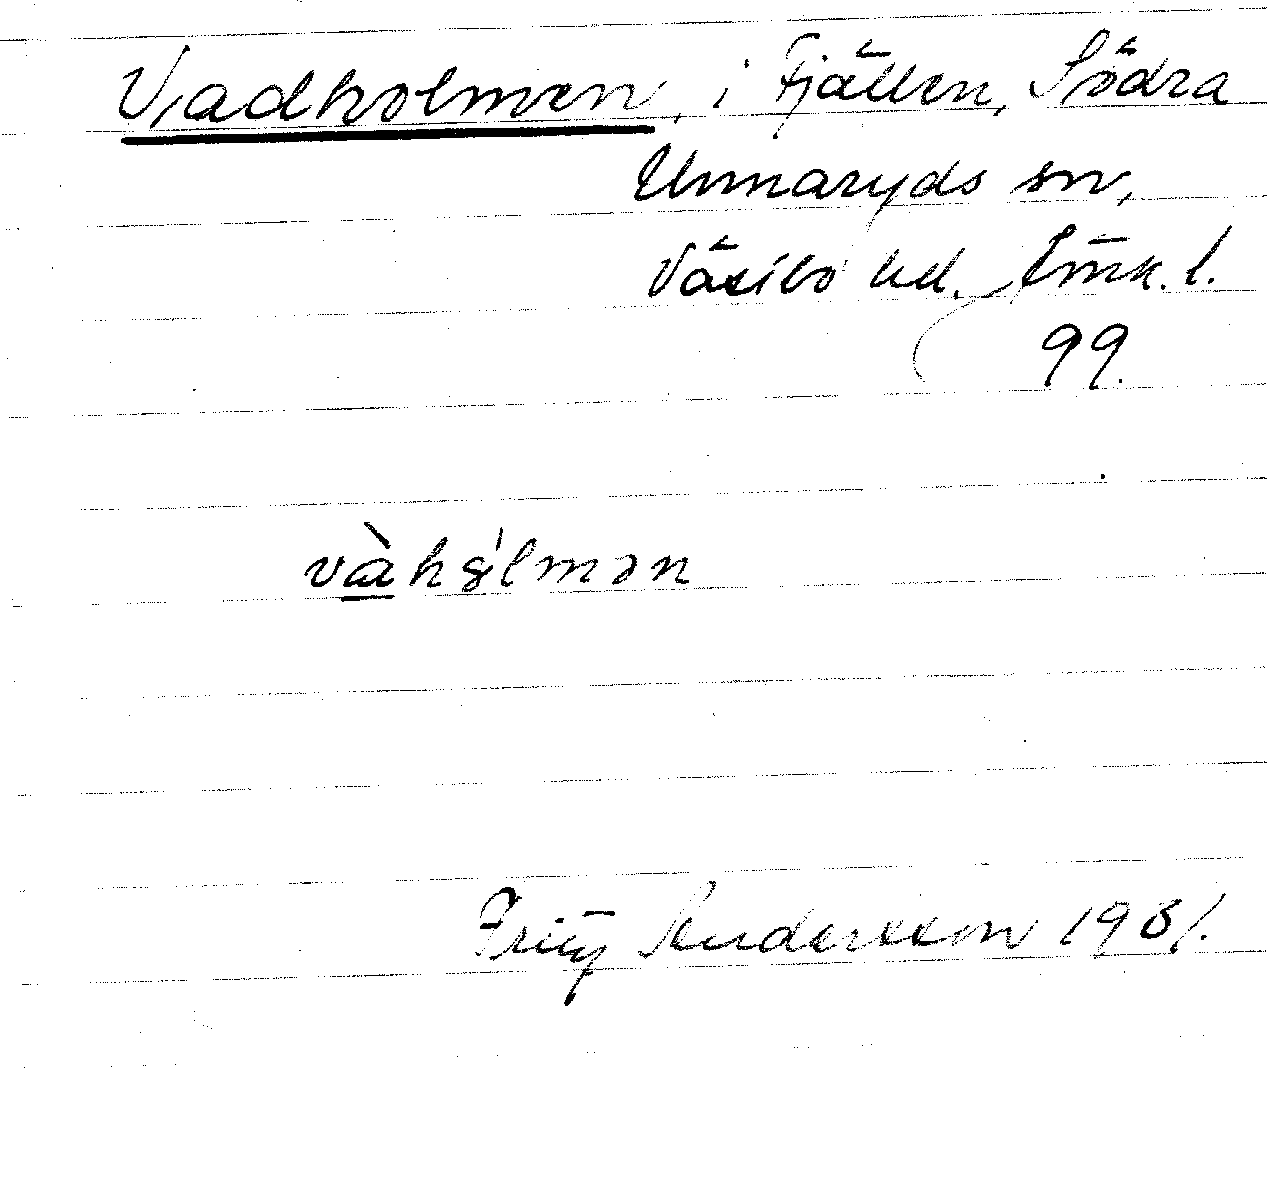 Vadholmen, i Fjällen, Södra
Unnaryds sn,
Västbo hd. Jmk. l.
99.
vàhɷ̀lmən
Fritz Andersson 1931.